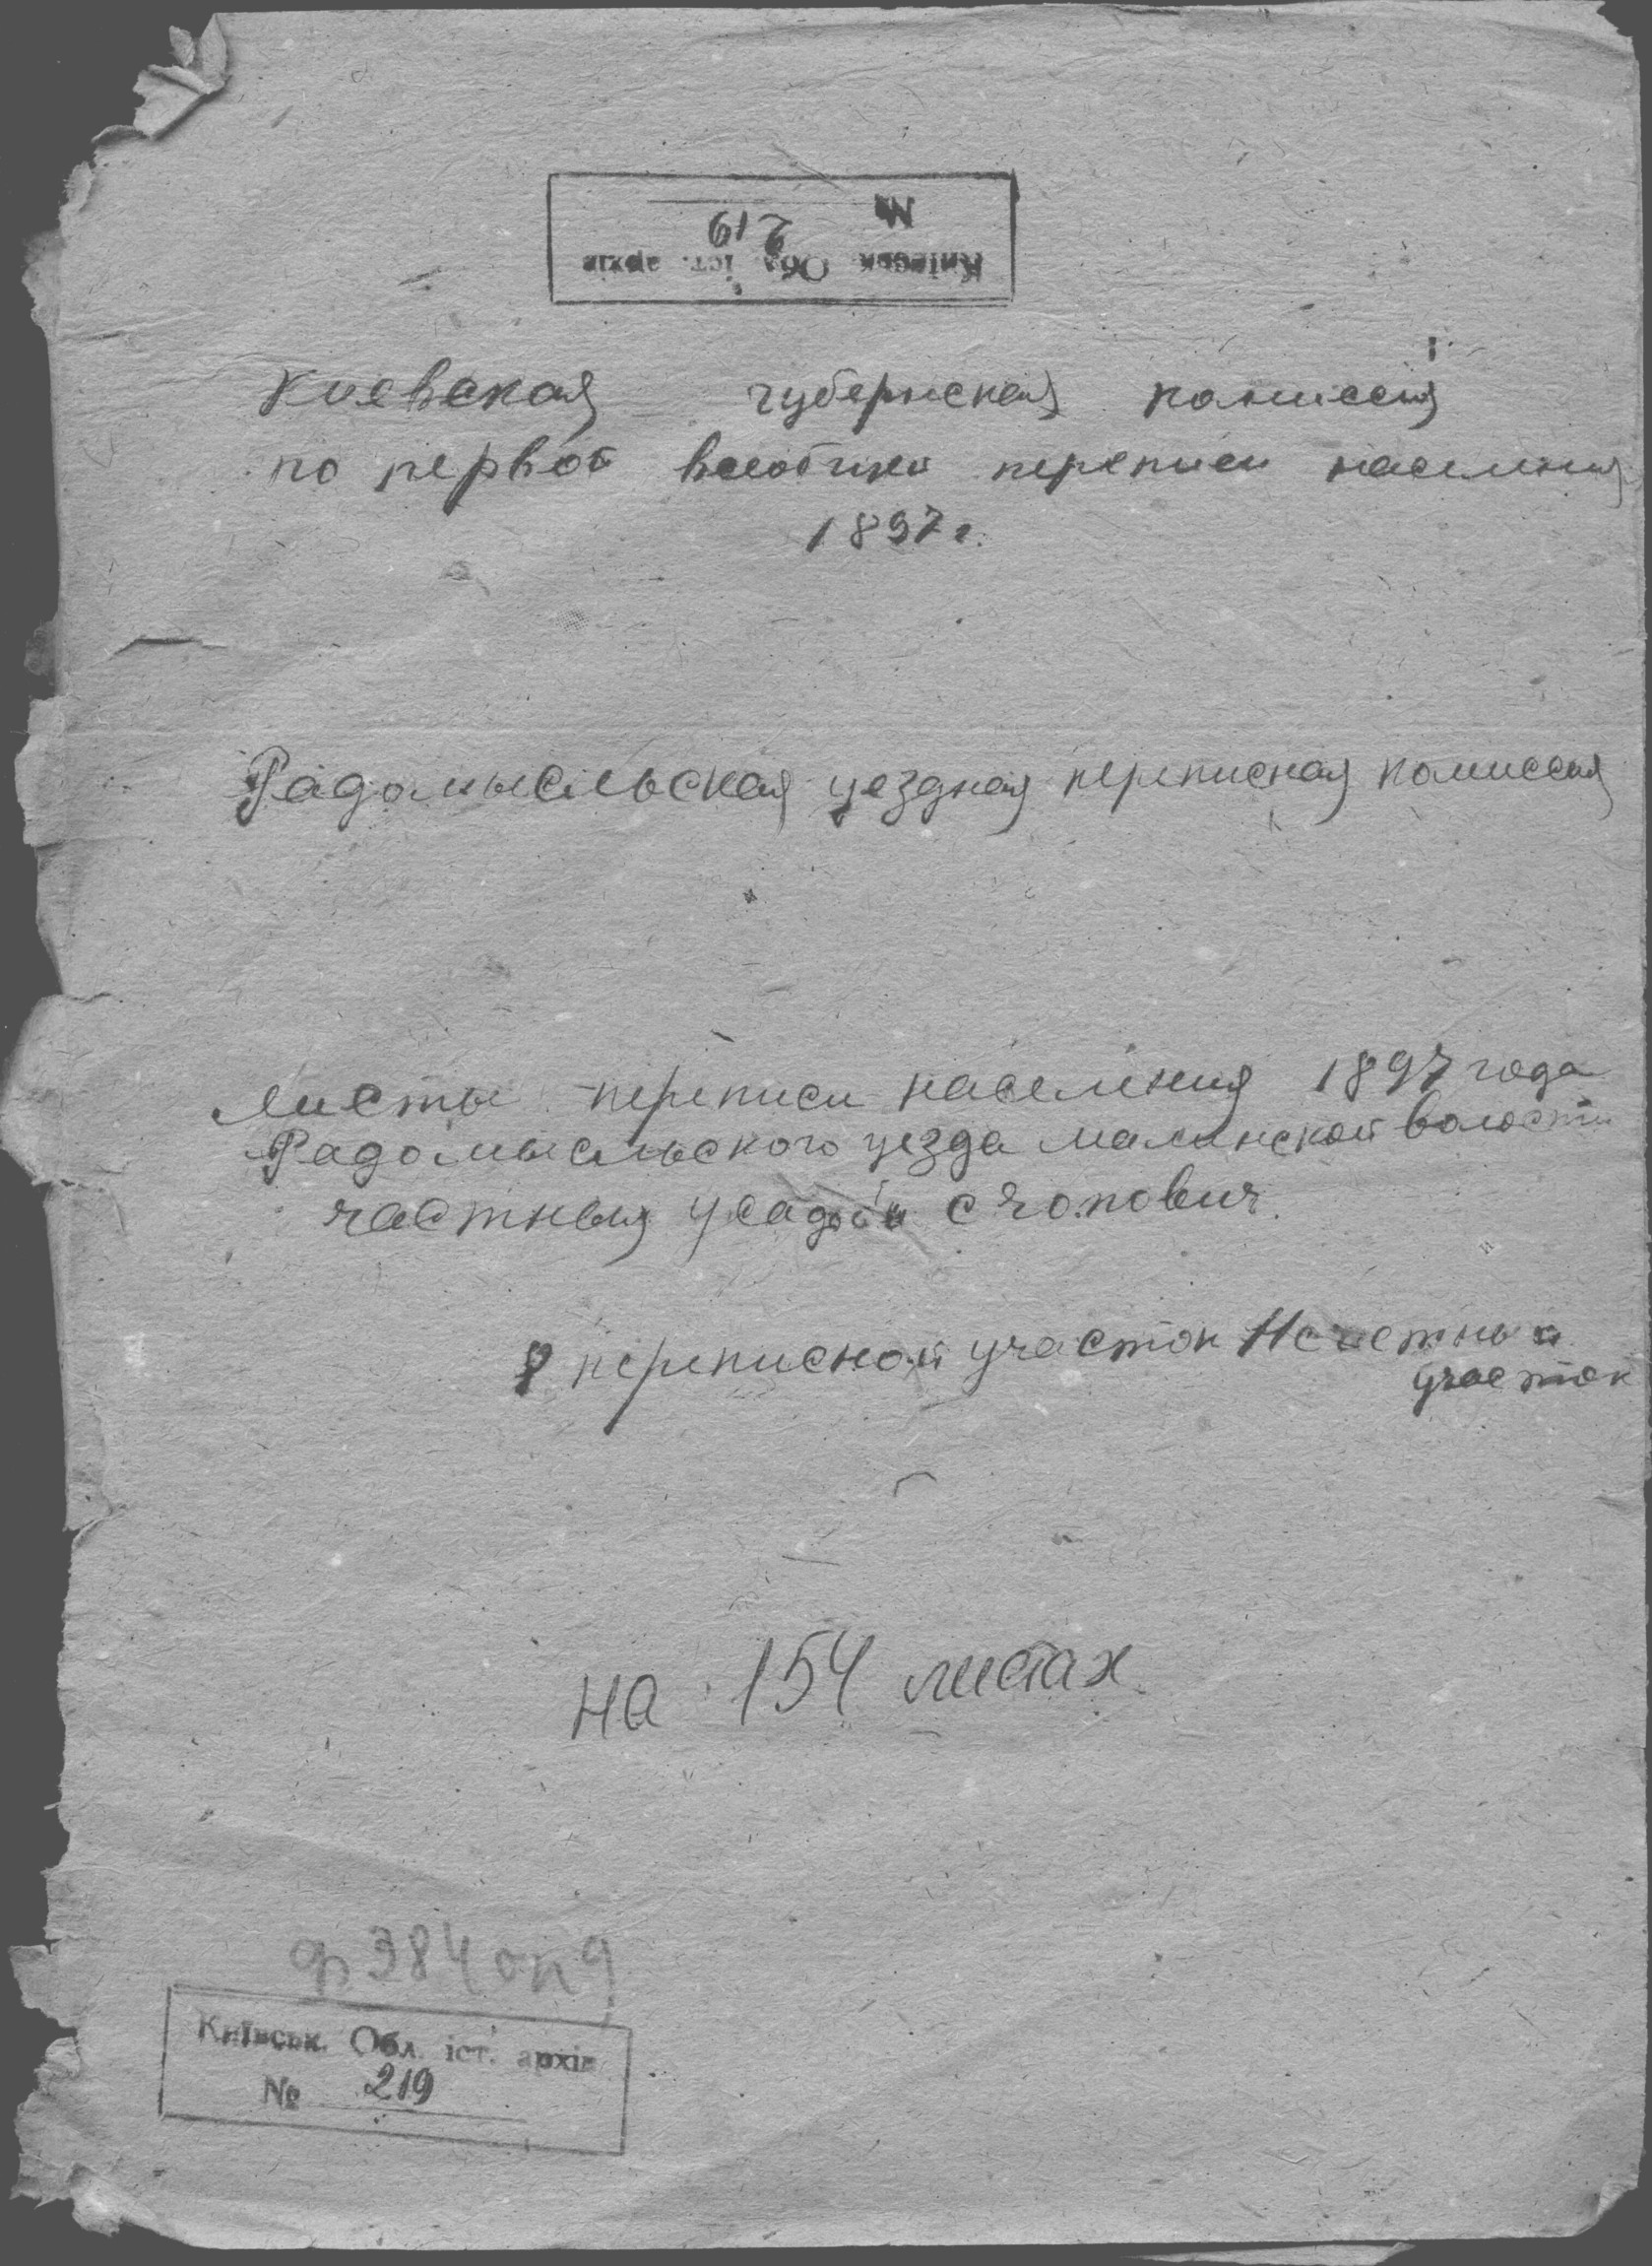 Київськ. Обл. іст. архів
№ 219
Киевская губернская комиссия
по первой всеобщей переписи населения
1897 г.
Радомысльская уездная переписная комиссия
Листы переписи населения 1897 года
Радомысльского уезда Малинской волости
частных усадьб с Чопович.
переписной участок Нсчетный
участок
на 154 листах
ф 384 оп 9
Київськ. Обл. іст. архів
№ 219